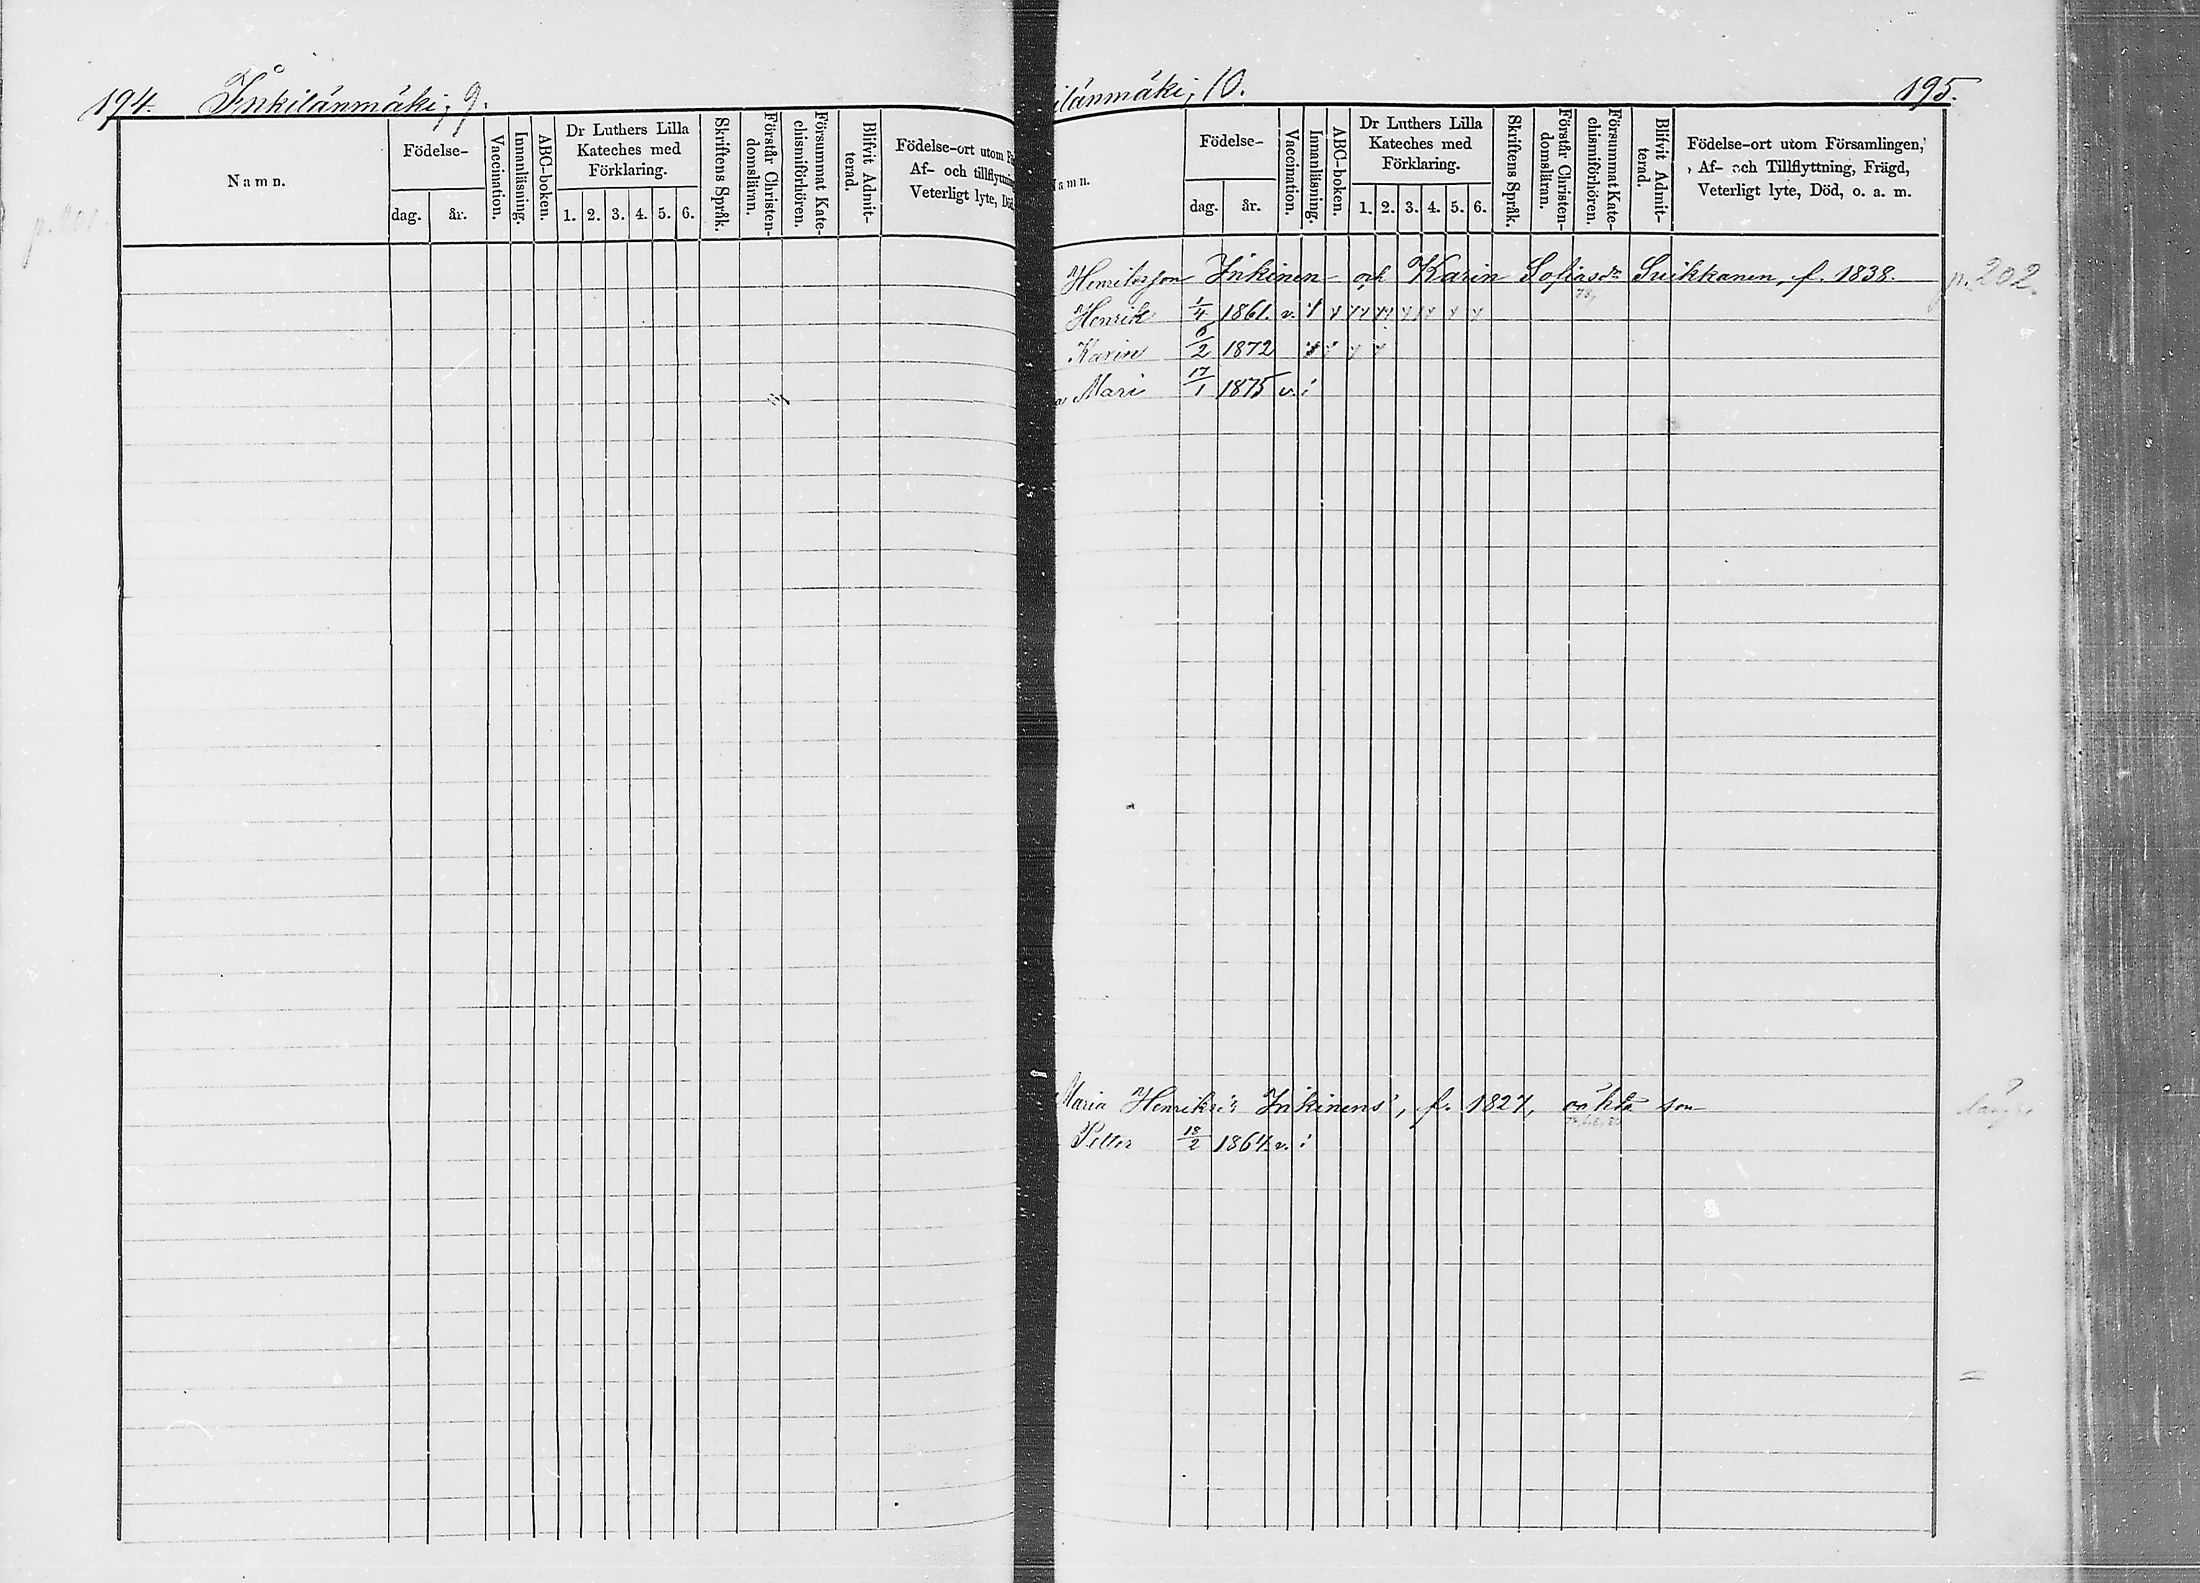 194. Inkilänmäki, 9.
p. 201.
Namn.
Födelse-
dag. år.
Vaccination.
Innanläsning.
ABC-boken.
Dr Luthers Lilla
Kateches med
Förklaring.
1. 2. 3. 4. 5. 6.
Skriftens Språk.
Förstår Christen-
domsläran.
Försummat Kate-
chismiförhören.
Blifvit Admit-
terad.
Födelse-ort utom
Af- och tillflyttning
Veterligt lyte, Död
ilänmäki, 10. 195.
amn.
Födelse-
dag. år.
Vaccination.
Innanläsning.
ABC-boken.
Dr Luthers Lilla
Kateches med
Förklaring.
1. 2. 3. 4. 5. 6.
Skriftens Språk.
Förstår Christen-
domsläran.
Försummat Kate-
chismiförhören.
Blifvit Admit-
terad.
Födelse-ort utom Församlingen,
Af- och Tillflyttning, Frägd,
Veterligt lyte, Död, o. a. m.
Henriksson Inkinen och Karin Suikkanen, f. 1838. p. 202.
Henrik 1/4 1861. v.
Karin 6/2 1872
Mari 17/1 1875 v.
Maria Inkinens, f. 1827, oäkta son
Petter 18/2 1864. v.